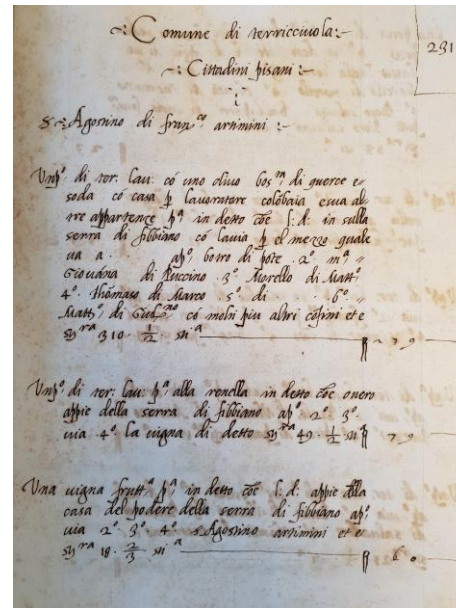 Comune di terricciuola:-
231
Cittadini pisani:-
S Agostino di fran.co artimini:-
Un po di ter: lau: có uno oliuo bos.ta di querce e
soda có casa p lauoratore colóbaia e sua al-
tre appartenze p.a in detto cóe l: d: in sulla
serra di fibbiano có la uia p el mezzo quale
ua a . ap.o borro di fote . 2.o m.a
Giouana di Puccino . 3.o Morello di Matt.o
4.o Thomaso di Marco . 5.o di . . 6.o
Matt.o di có molti piu altri cófini et e
310 . 1/2
279
Un po di ter: lau: p.a alla renella in detto cóe ouero
appie della serra di fibbiano ap.o 2.o 3.o
uia 4.o la uigna di detto 49 . 1/2
79
Una uigna frutt.a p.a in detto cóe l: d: appie della
casa del podere della serra di fibbiano ap.o
uia 2.o 3.o 4.o s Agostino artimini et e
18 . 2/3
60